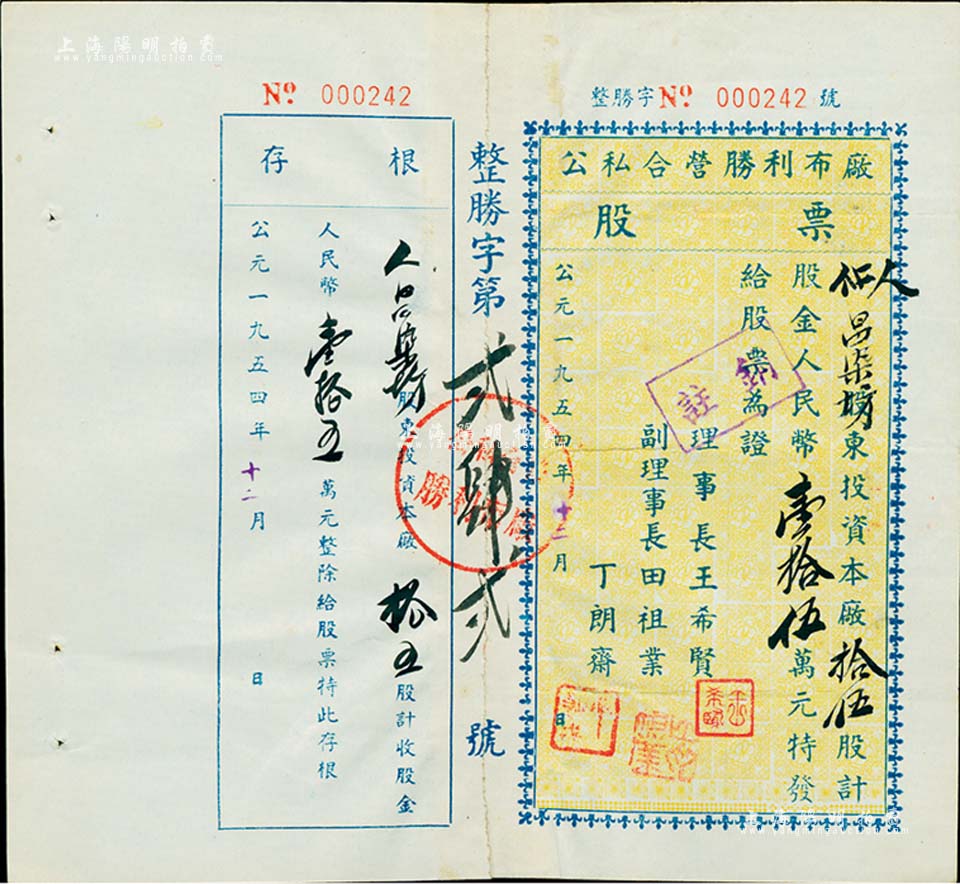 上海陽明拍賣
www.yangmingauction.com
整勝字 Nº 000242 號
公私合營勝利布廠
股票
人和昌染坊東投資本廠拾伍股計
股金人民幣壹拾伍萬元特發
給股票為證
理事長王希賢
副理事長田祖業
丁朗齋
公元一九五四年十二月 日
註銷
整勝字第貳肆貳號
Nº 000242
存根
人和昌染坊股東投資本廠拾五股計收股金
人民幣壹拾五萬元整除給股票特此存根
公元一九五四年十二月 日
上海陽明拍賣
www.yangmingauction.com
上海陽明拍賣
www.yangmingauction.com